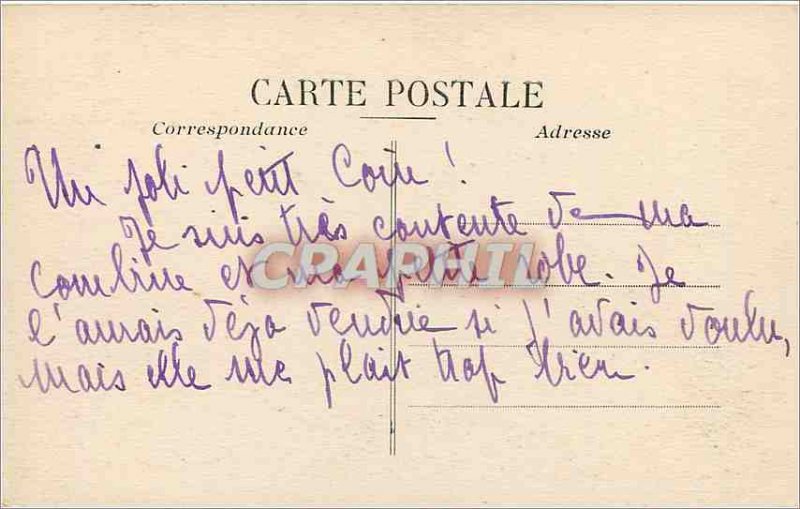 CARTE POSTALE
Correspondance Adresse
Un joli petit Coin !
Je suis très contente de ma
combine et ma petite robe. Je
CPAPHIL
l'aurais déja vendue si j'avais voulu,
mais elle me plait trop bien.